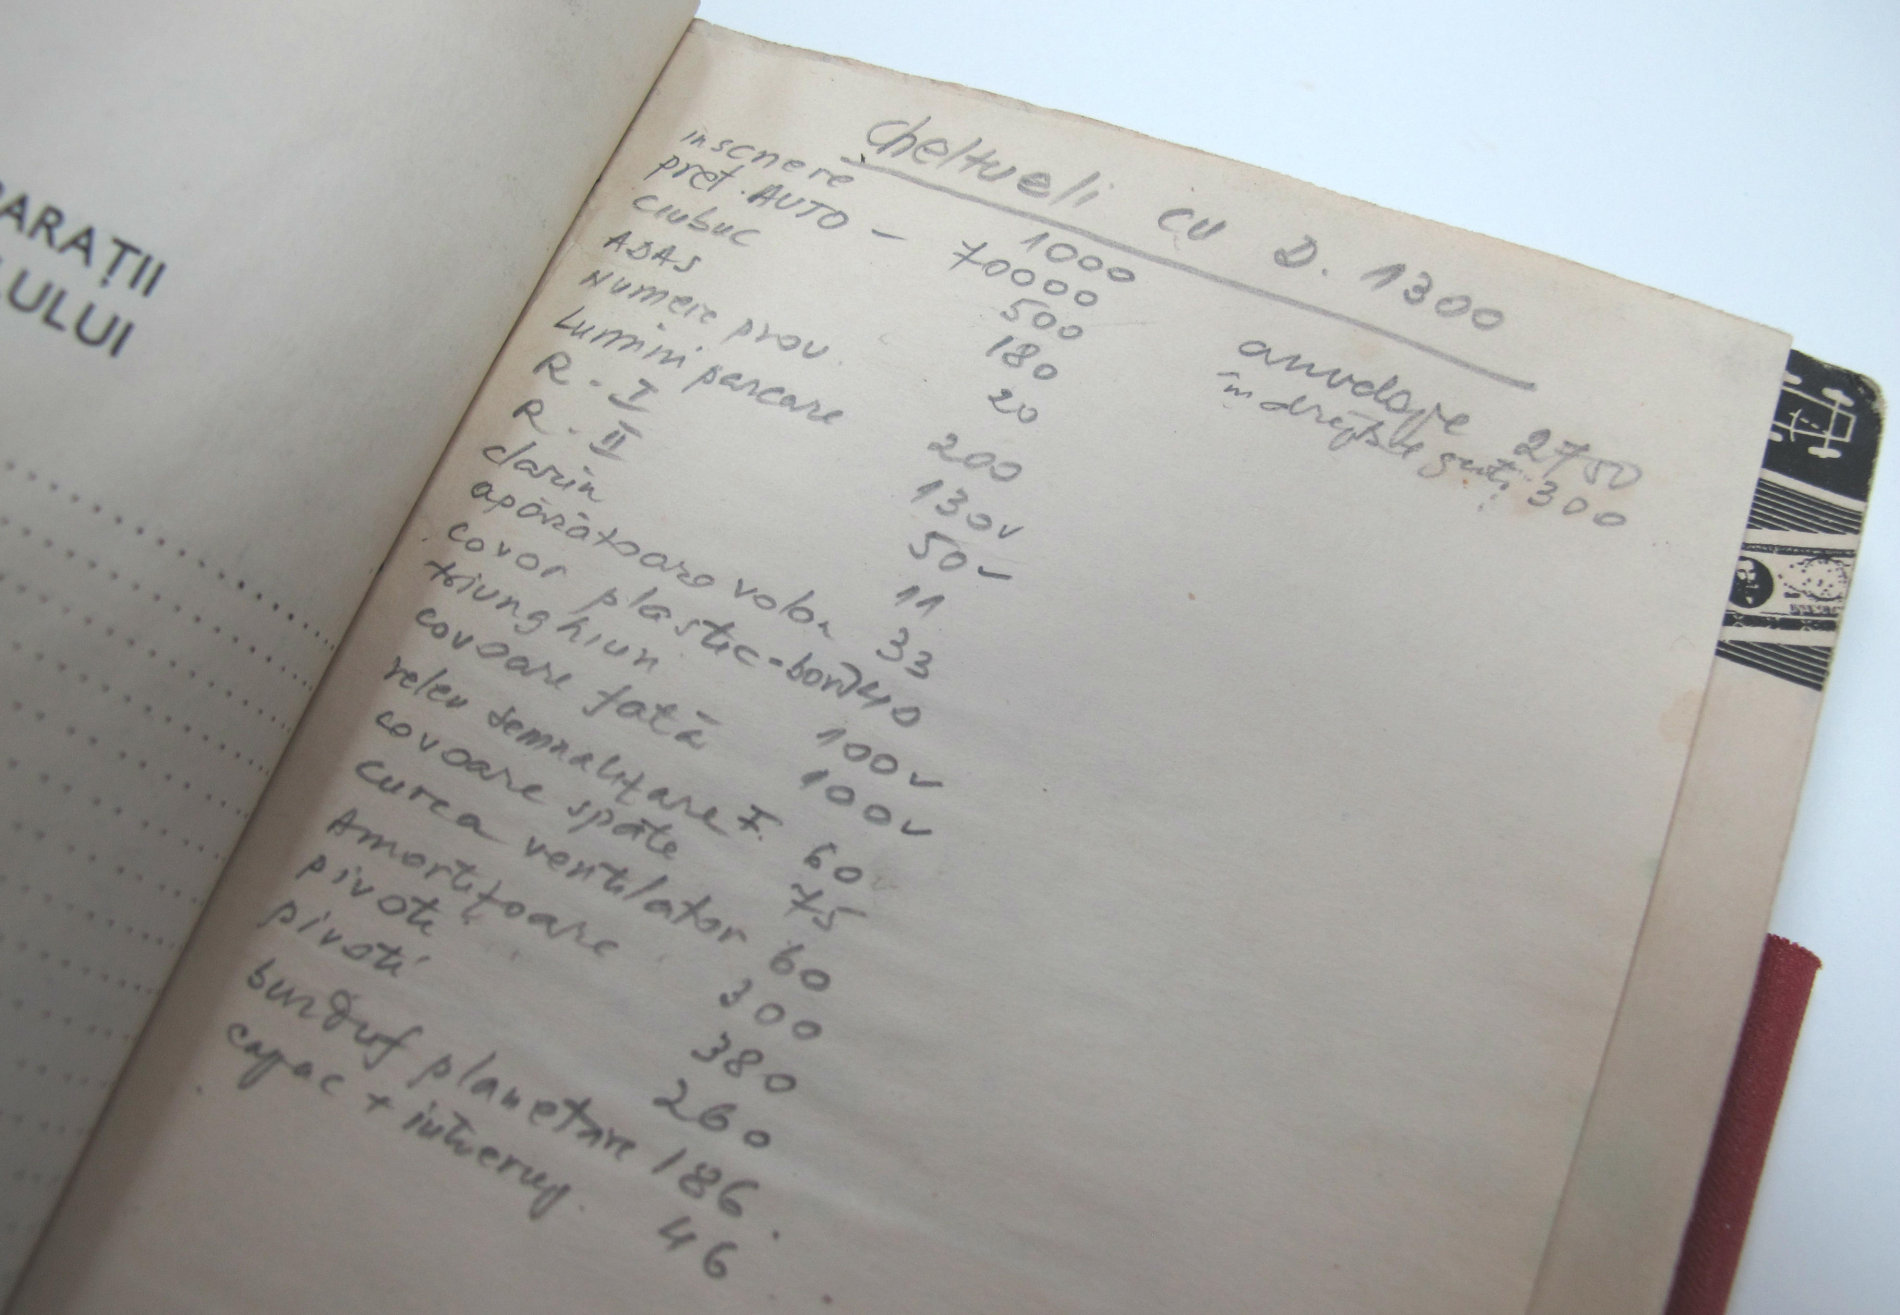 PARAȚII
LULUI
Cheltueli cu D. 1300
inscriere 1000
preț. AUTO — 70000
ciubuc 500
ADAS 180
Numere prov. 20
Lumini parcare 200
R. I 130 v
R. II 50 v
claxin 11
apărătoare volan 33
covor plastic-bord 140
triunghiuri 100 v
covoare față 100 v
releu semnalizare F. 60
covoare spate 75
curea ventilator 60
Amortizoare 300
pivoti 380
pivoti 260
burduf planetare 186.
capac + intrerup. 46
anvelope 2750
îndreptat 300